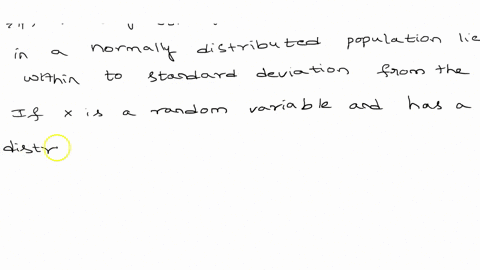 in a normaly distributed population lie
within to standard deviation from the
If x is a random variable and has a
distr